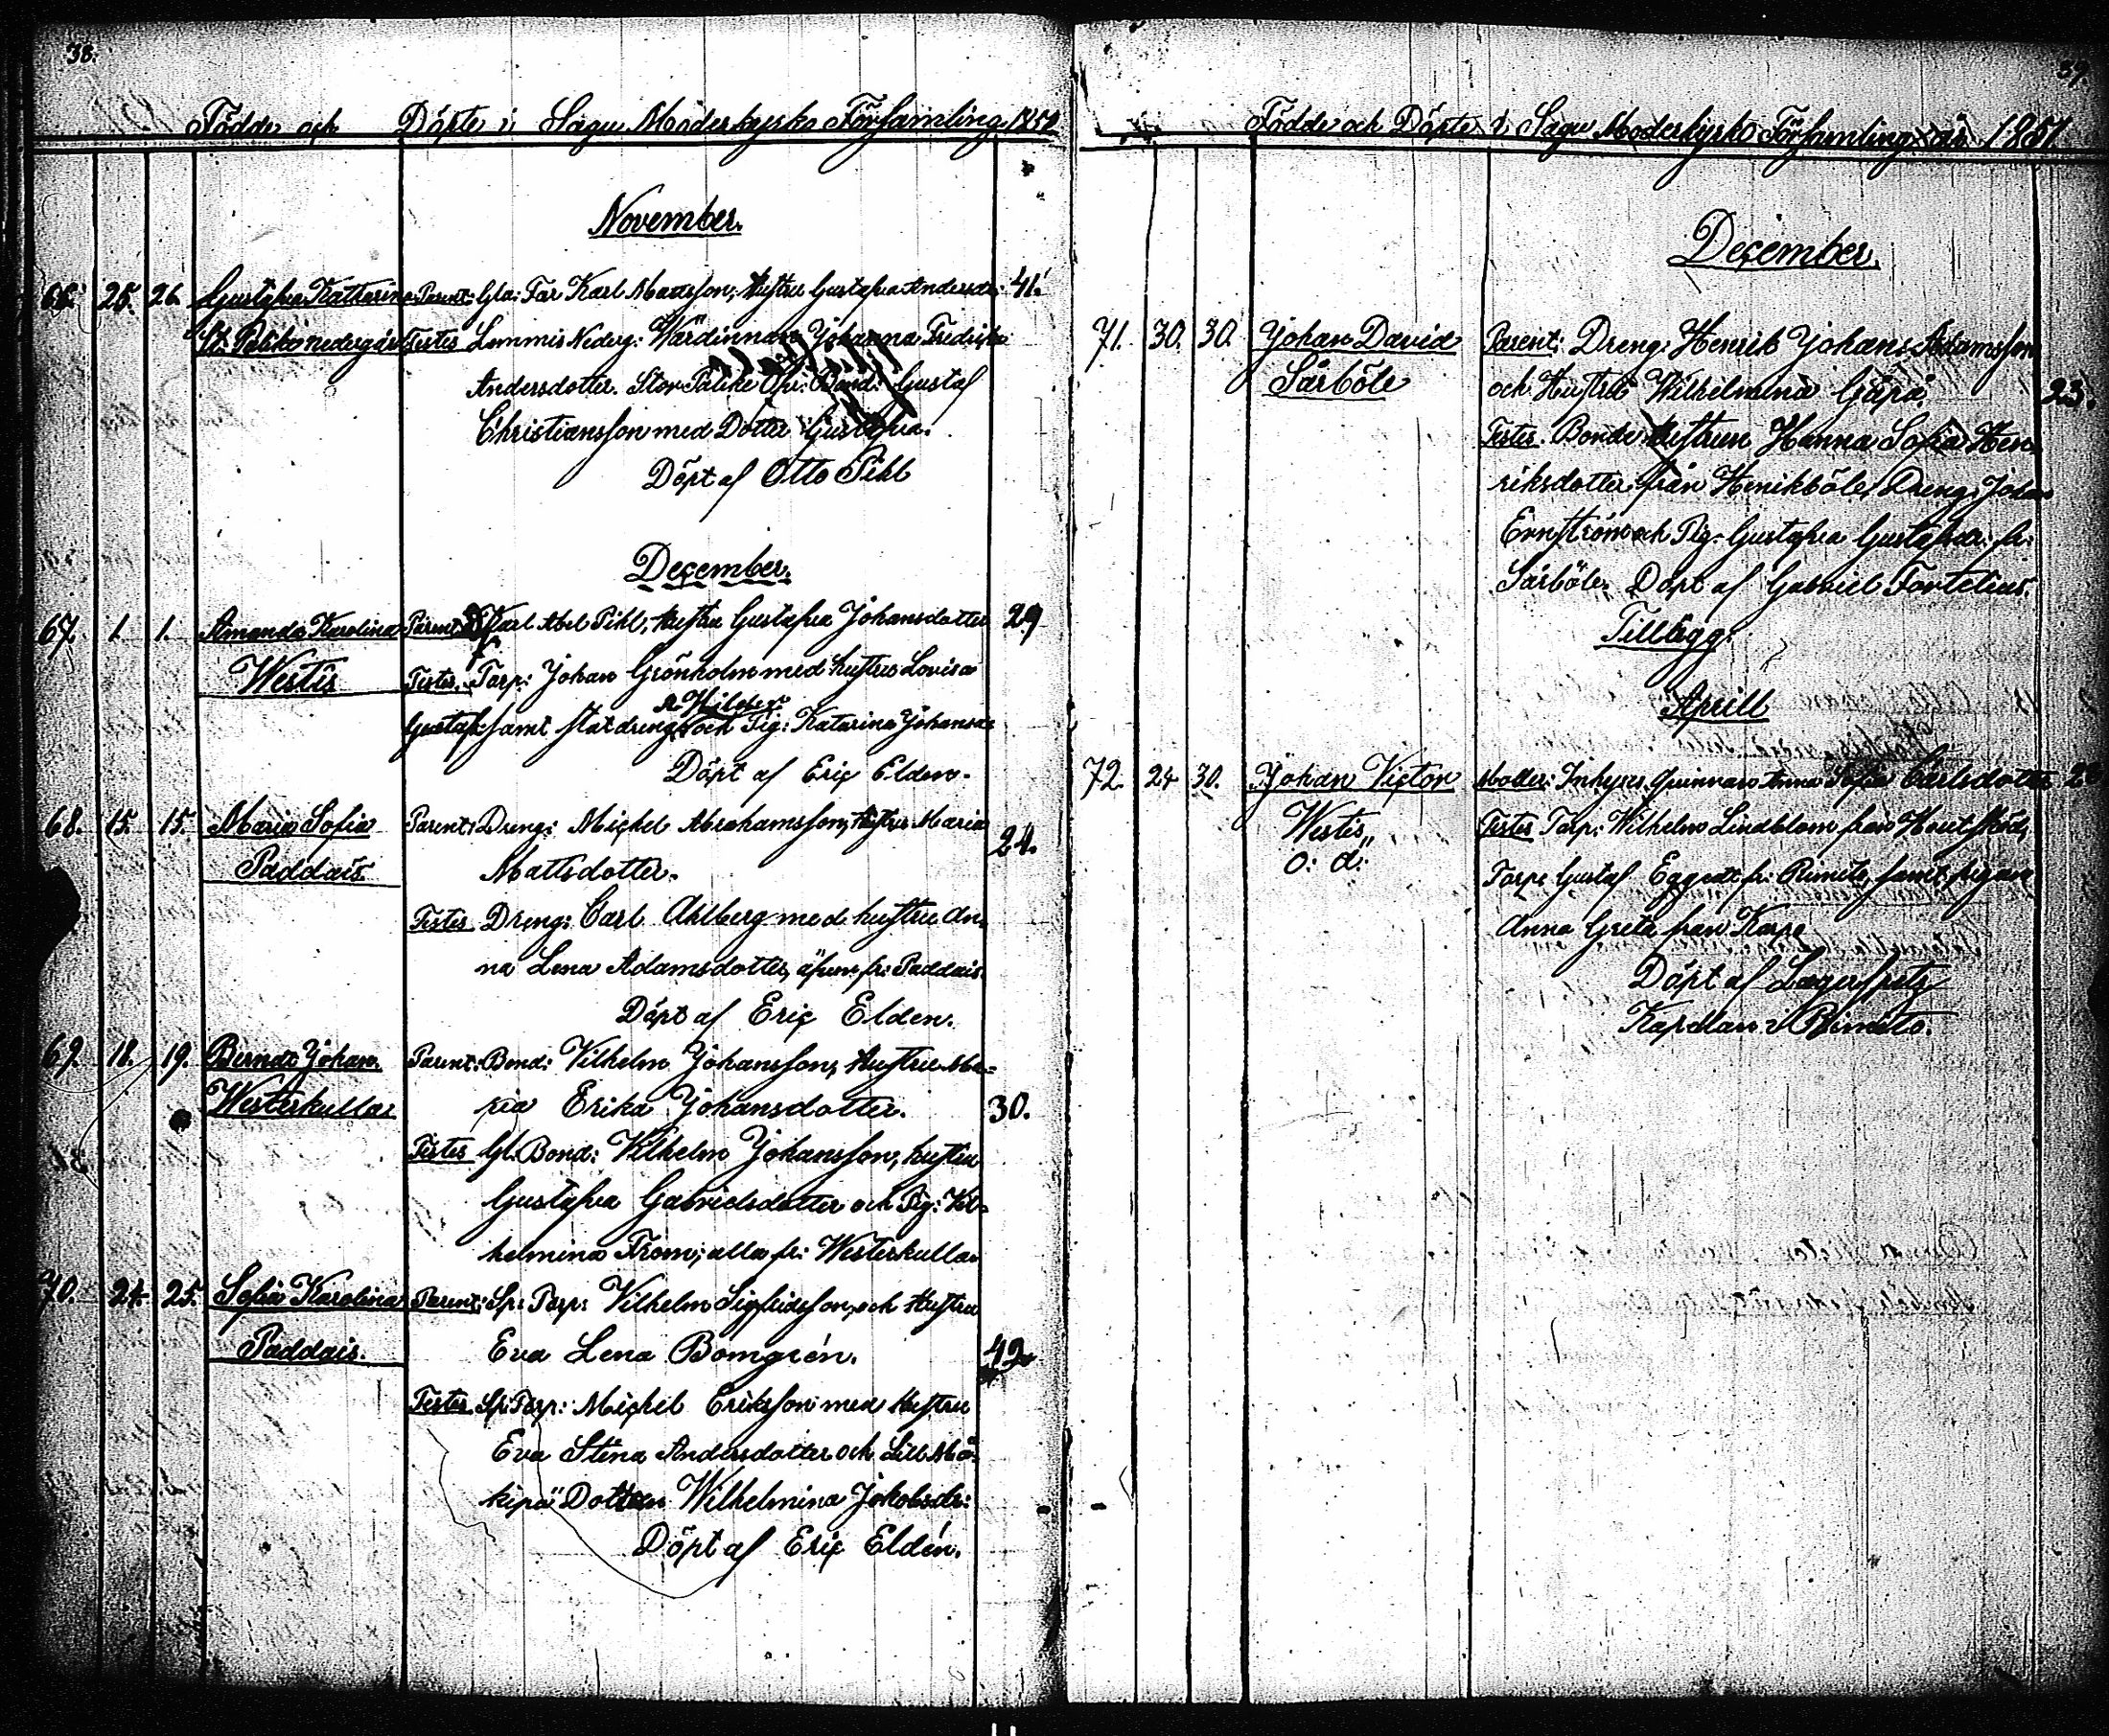 38.
Födde och Döpte i Sagu Moderkyrko Församling 1851
November.
66. 25. 26. Gustafva Katharina Parent: Gla: Far Karl Mattsson, Hustru Gustafva Andersdr: 41.
St: Peliko nedergård Testes Lemmis Nederg: Wärdinnan Johanna Fredrika
Andersdotter. Stor Pälike Öfv: Bond: Gustaf
Christiansson med Dotter Gustafva.
Döpt af Otto Pihl
December.
67. 1. 1. Amanda Karolina Parent: Karl Abel Pihl, Hustru Gustafva Johansdotter 29
Westis Testes. Torp: Johan Grönholm med hustru Lovisa
Gustafs: samt statdreng A. Hilder: och Pig: Katarina Johansdr
Döpt af Eric Elden.
68. 15. 15. Maria Sofia Parent: Dreng: Michel Abrahamsson, Hustru Maria
Paddais Mattsdotter. 24.
Testes Dreng: Carl Ahlberg med hustru An-
na Lena Adamsdotter, äfven fr: Paddais.
Döpt af Eric Elden.
69. 18. 19. Berndt Johan. Parent: Bond: Vilhelm Johansson, Hustru Ma-
Westerkulla ria Erika Johansdotter. 30.
Testes Gl. Bond: Vilhelm Johansson, hustru
Gustafva Gabrielsdotter och Pig: Vil-
helmina From; alla fr: Westerkulla
70. 24. 25. Sofia Karolina Parent: Sp: Torp: Vilhelm Sigfridsson, och Hustru
Paddais. Eva Lena Bomgrén. 42
Testes Sp: Torp: Michel Eriksson med Hustru
Eva Stina Andersdotter och Lill Mä-
kipä Dottren Wilhelmina Jakobsdr:
Döpt af Eric Eldén.
39.
Födde och Döpte i Sagu Moderkyrko Församling år 1851
December.
71. 30. 30. Johan David Parent: Dreng: Henrik Johans Adamsson
Särböle och Hustru Wilhelmina Gäpä. 23.
Testes Bonde Hustrun Hanna Sofia Hen-
riksdotter från Henikböle, Dreng: Johan
Ernström och Pig: Gustafva Gustafsdr: fr:
Särböle. Döpt af Gabriel Fortelius.
Tillägg.
Aprill
72. 24 30. Johan Victor Moder: Inhyses Quinnan Anna Sofia Carlsdotter
Westis Testes Torp: Wilhelm Lindblom från
o: ä: Torp: Gustaf Eggert fr: Rimito, samt pigan
Anna Greta från Karpo
Döpt af Lagerspetz
Kapelan i Rimito.